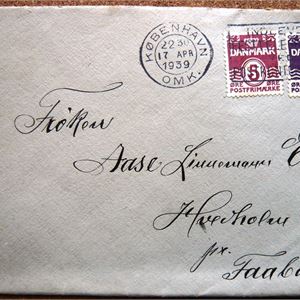 KØBENHAVN
22 30
17 APR
1939
OMK.
DANMARK
5
ØRE ØRE
POSTFRIMÆRKE
Frøken
Aase Linnemann
Hvedholm
pr.
Faab